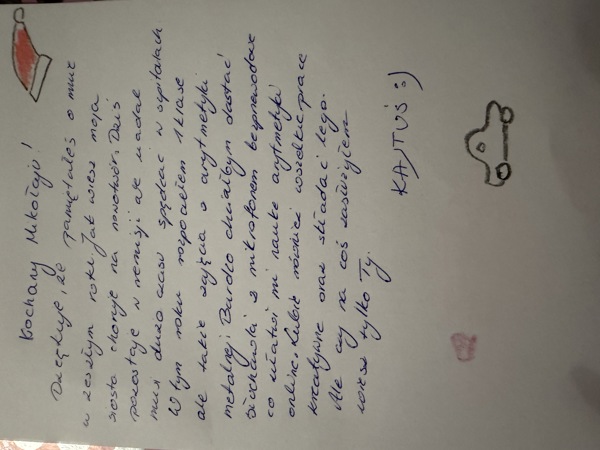 Kochany Mikołaju!
Dziękuję, że pamiętałeś o mnie
w zeszłym roku. Jak wiesz moja
siostra choruje na nowotwór. Dziś
pozostaje w remisji ale nadal
musi dużo czasu spędzać w szpitalach.
W tym roku rozpocząłem 1 klasę
ale także zajęcia z arytmetyki
mentalnej. Bardzo chciałbym dostać
słuchawki z mikrofonem bezprzewodowe
co ułatwi mi naukę arytmetyki
online. Lubię również wszelkie prace
kreatywne oraz składać lego.
Ale czy na coś zasłużyłem
wiesz tylko Ty.
KAJTUŚ :)